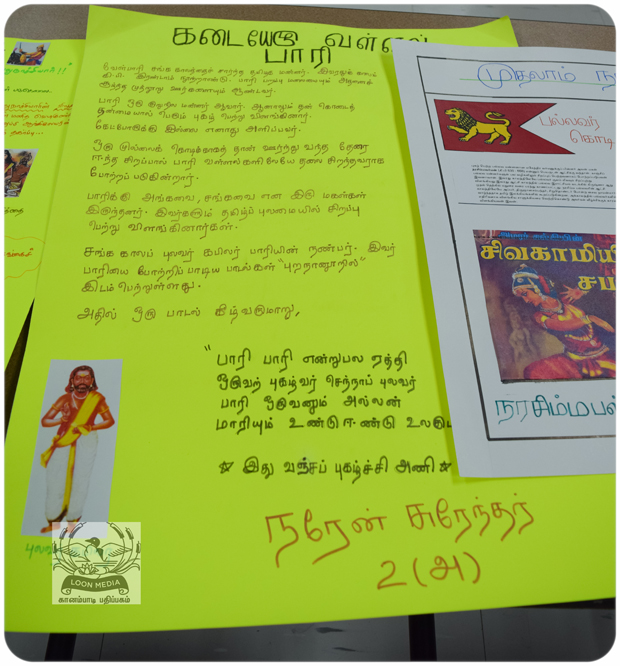 கடையேழு வள்ளல்
பாரி
வேள்பாரி சங்க காலத்தைச் சார்ந்த தமிழக மன்னர். இவரது காலம்
கி.பி. இரண்டாம் நூற்றாண்டு. பாரி பறம்பு மலையையும் அதனைச்
சூழ்ந்த முந்நூறு ஊர்களையும் ஆண்டவர்.
பாரி ஒரு குறுநில மன்னர் ஆவார். ஆனாலும் தன் கொடைத்
தன்மையால் பெரும் புகழ் பெற்று விளங்கினார்.
கேட்போருக்கு இல்லை எனாது அளிப்பவர்.
ஒரு முல்லைக் கொடிக்காகத் தான் ஊர்ந்து வந்த தேரை
ஈந்த சிறப்பால் பாரி வள்ளல்களிலேயே தலை சிறந்தவராக
போற்றப் படுகின்றார்.
பாரிக்கு அங்கவை, சங்கவை என இரு மகள்கள்
இருந்தனர். இவர்களும் தமிழ்ப் புலமையில் சிறப்பு
பெற்று விளங்கினார்கள்.
சங்க காலப் புலவர் கபிலர் பாரியின் நண்பர். இவர்
பாரியை போற்றிப் பாடிய பாடல்கள் "புறநானூறில்"
இடம் பெற்றுள்ளது.
அதில் ஒரு பாடல் கீழ்வருமாறு,
"பாரி பாரி என்றுபல ஏத்தி
ஒருவற் புகழ்வர் செந்நாப் புலவர்
பாரி ஒருவனும் அல்லன்
மாரியும் உண்டு ஈண்டு
☆ இது வஞ்சப் புகழ்ச்சி அணி ☆
நரேன் சுரேந்தர்
2 (அ)
முதலாம்
பல்லவர்
கொடி
சிவகாமியி
சப
நரசிம்மபல்
LOON MEDIA
கானம்பாடி பதிப்பகம்